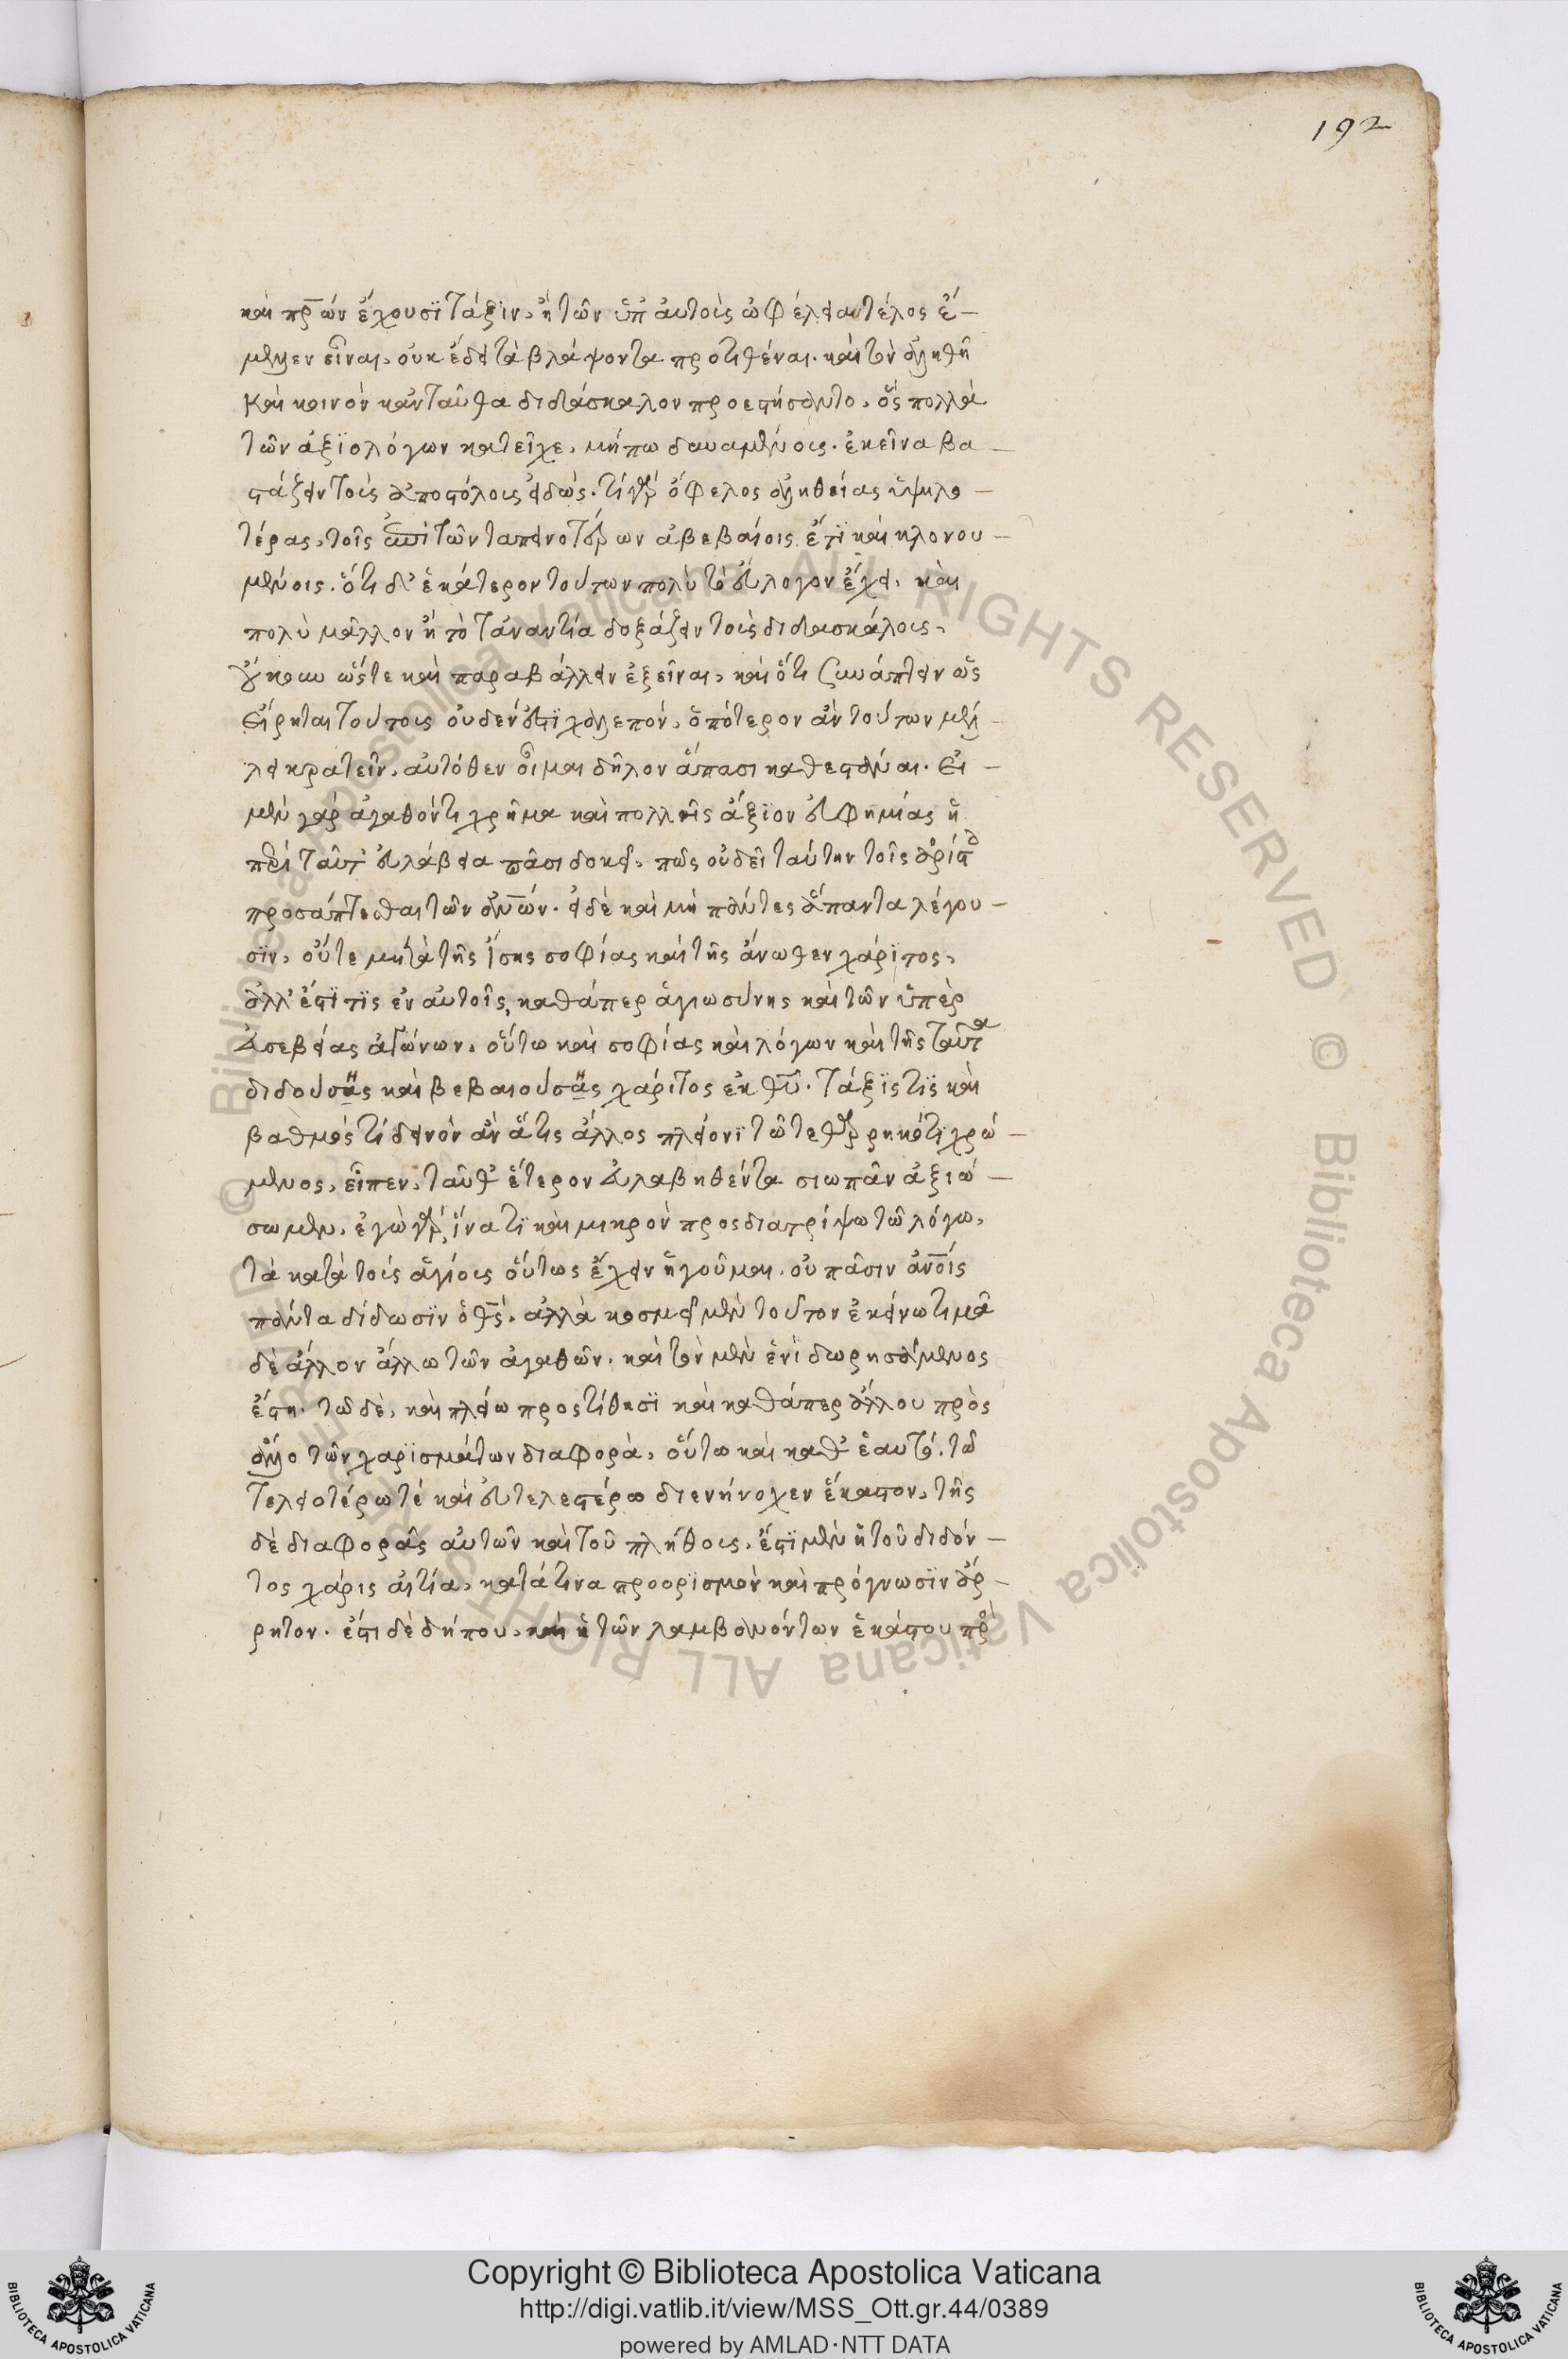 192
καὶ πρ̅ων ἔχουσϊ τάξϊν, ἡ τῶν ὑπ' αὐτοὺς ὠφέλεια τέλος ἔ-
μελλεν εἶναι, οὐκ ἔδει τὰ βλάψοντα προτιθέναι. καὶ τὸν ἀληθῆ
καὶ κοινὸν κἀνταῦθα διδάσκαλον προεστήσαντο, ὃς πολλὰ
τῶν ἀξϊολόγων κατεῖχε, μήπω δυναμένους ἐκεῖνα βα-
στάζειν τοὺς ἀποστόλους εἰδώς. τί γὰρ ὄφελος ἀληθείας ὑψηλο-
τέρας, τοῖς ἐπὶ τῶν ταπεινοτέρων ἀβεβαίοις ἔτϊ καὶ κλονου-
μένοις. ὅτι δ' ἑκάτερον τούτων πολὺ τὸ εὔλογον ἔχει, καὶ
πολὺ μᾶλλον ἢ τὸ τἀναντία δοξάζειν τοὺς διδασκάλους,
ὥστε καὶ παραβάλλειν ἐξεῖναι, καὶ ὅτι συνάπτειν ὡς
εἴρηται τούτους οὐδὲν ἔτϊ χαλεπόν, ὁπότερον ἂν τούτων μέλ-
λει κρατεῖν, αὐτόθεν οἶμαι δῆλον ἅπασι καθεστάναι. εἰ
μὲν γὰρ ἀγαθόν τι χρῆμα καὶ πολλῆς ἄξϊον εὐφημίας ἡ
περὶ ταῦτ' εὐλάβεια πᾶσι δοκεῖ, πῶς οὐ δεῖ ταύτην τοῖς ἀρίστ
προσάπτεσθαι τῶν ἀν̅ων. εἰ δὲ καὶ μὴ πάντες ἅπαντα λέγου-
σϊν, οὔτε μετὰ τῆς ἴσης σοφίας καὶ τῆς ἄνωθεν χάρϊτος,
ἀλλ' ἔστϊ τϊς ἐν αὐτοῖς, καθάπερ ἁγιωσύνης καὶ τῶν ὑπὲρ
εὐσεβείας ἀγώνων, οὕτω καὶ σοφίας καὶ λόγων καὶ τῆς ταῦτα
διδούσης καὶ βεβαιούσης χάριτος ἐκ θ̅υ. τάξϊς τϊς καὶ
βαθμὸς τί δεινὸν ἂν ἅ τις ἄλλος πλείονϊ τῶ τεθαρρηκότϊ χρώ-
μενος, εἶπεν, ταῦθ' ἕτερον εὐλαβηθέντα σιωπᾶν ἀξιώ-
σωμεν. ἐγὼ γὰρ, ἵνα τϊ καὶ μικρὸν προσδιατρίψω τῶ λόγω,
τὰ κατὰ τοὺς ἁγίους οὕτως ἔχειν ἡγοῦμαι. οὐ πᾶσιν ἀν̅οις
πάντα δίδωσϊν ὁ θ̅ς. ἀλλὰ κοσμεῖ μὲν τοῦτον ἐκείνω τιμᾶ
δὲ ἄλλον ἄλλω τῶν ἀγαθῶν. καὶ τὸν μὲν ἑνὶ δωρησάμενος
ἔστη. τῶ δὲ, καὶ πλείω προστίθησϊ καὶ καθάπερ ἄλλου πρὸς
ἄλλο τῶν χαρϊσμάτων διαφορὰ, οὕτω καὶ καθ' ἑαυτό. τῶ
τελειοτέρω τὲ καὶ ἀτελεστέρω διενήνοχεν ἕκαστον, τῆς
δὲ διαφορᾶς αὐτῶν καὶ τοῦ πλήθους, ἔστϊ μὲν ἡ τοῦ διδόν-
τος χάρις αἰτία, κατά τινα προορϊσμὸν καὶ πρόγνωσϊν ἄρ-
ρητον. ἔστι δὲ δήπου, καὶ ἡ τῶν λαμβανόντων ἑκάστου πρὸ
Copyright © Biblioteca Apostolica Vaticana
http://digi.vatlib.it/view/MSS_Ott.gr.44/0389
powered by AMLAD·NTT DATA